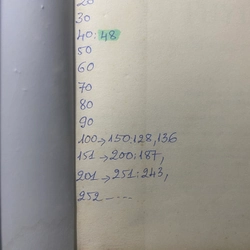 20
30
40:48
50
60
70
80
90
100→150:128,136
151→200:187,
201→251:243,
252.....